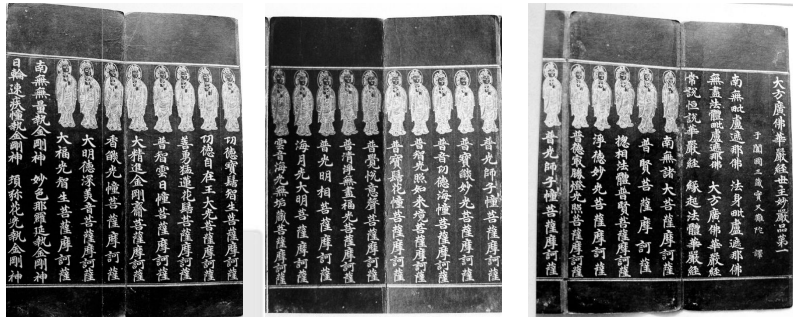 大方廣佛華嚴經世主妙嚴品第一
于闐國三藏實叉難陀 譯
南無毗盧遮那佛 法身毗盧遮那佛
無盡法體毗盧遮那佛 大方廣佛華嚴經
常說恒說華嚴經 緣起法體華嚴經
南無諸大菩薩摩訶薩
普賢菩薩摩訶薩
摠相法體普賢菩薩摩訶薩
淨德妙光菩薩摩訶薩
普德㝡勝燈光照菩薩摩訶薩
普光師子幢菩薩摩訶薩
普光師子幢菩薩摩訶薩
普寶燄妙光菩薩摩訶薩
普音功德海幢菩薩摩訶薩
普智光照如來境菩薩摩訶薩
普寶髻花幢菩薩摩訶薩
普覺悅意聲菩薩摩訶薩
普清淨無盡福光菩薩摩訶薩
普光明相菩薩摩訶薩
海月光大明菩薩摩訶薩
雲音海光無垢藏菩薩摩訶薩
功德寶髻智生菩薩摩訶薩
功德自在王大光菩薩摩訶薩
善勇猛蓮花髻菩薩摩訶薩
普智雲日幢菩薩摩訶薩
大精進金剛齊菩薩摩訶薩
香燄光幢菩薩摩訶薩
大明德深美音菩薩摩訶薩
大福光智生菩薩摩訶薩
南無無量執金剛神 妙色那羅延執金剛神
日輪速疾幢執金剛神 須弥花光執金剛神